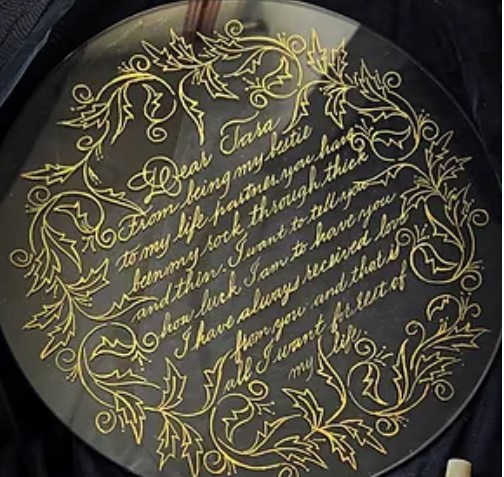 Dear Tara
From being my bestie
to my life partner, you have
been my rock through thick
and thin. I want to tell you
how luck I am to have you
I have always received love
from you and that is
all I want for rest of
my life.